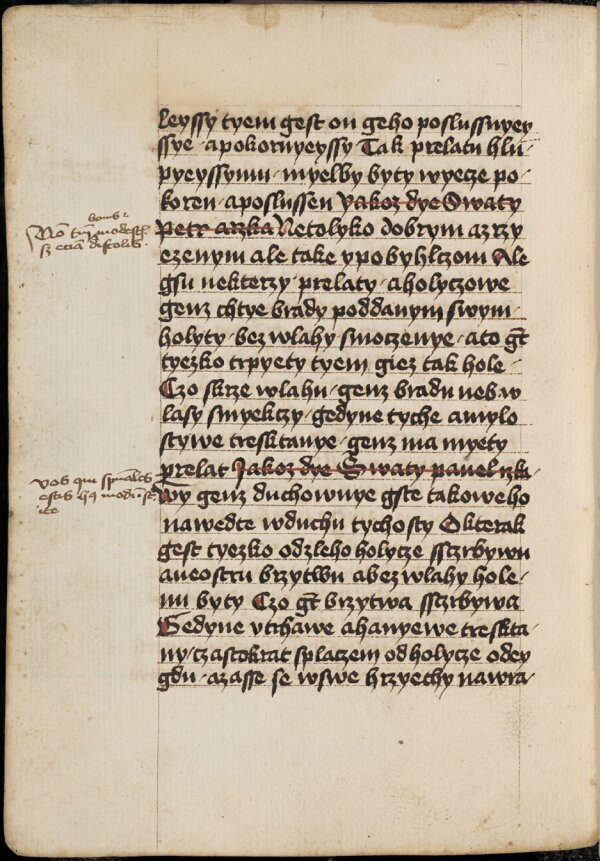 leyssy tyem gest on geho poslussnyey
ssye · a pokornyeyssy Tak prelatu hlu
pyeyssymu · myelby byty wyecze po
koren · a poslussen Yakoz dye Swaty
Petr arzka Netolyko dobrym a zrzy
ezenym ale take y pobyhlczom Ale
gsu nekterzy · prelaty · a holyczowe
genz chtye brady poddanym swym
holyty · bez wlahy smoczenye · a to gt
tyezko trpyety tyem giez tak hole
Czo skrze wlahu · genz bradu neb w
lasy smyekczy · gedyne tyche a mylo
stywe tresktanye · genz ma myety
prelat Jakoz dye Swaty pawel rzka
Wy genz duchownye gste takoweho
nawedte w duchu tychosty O kterak
gest tyezko od zleho holycze sszrbywu
a neostru brzytwu a bez wlahy hole
nu byty Czo gt brzytwa sszrbywa
Gedyne vtrhawe a hanyewe treskta
ny · czastokrat splaczem od holycze odey
gdu · azasse se w swe hrzyechy nawra
Non tantum modestis
bonis
sed eciam discolis
vos qui spirituales
estis